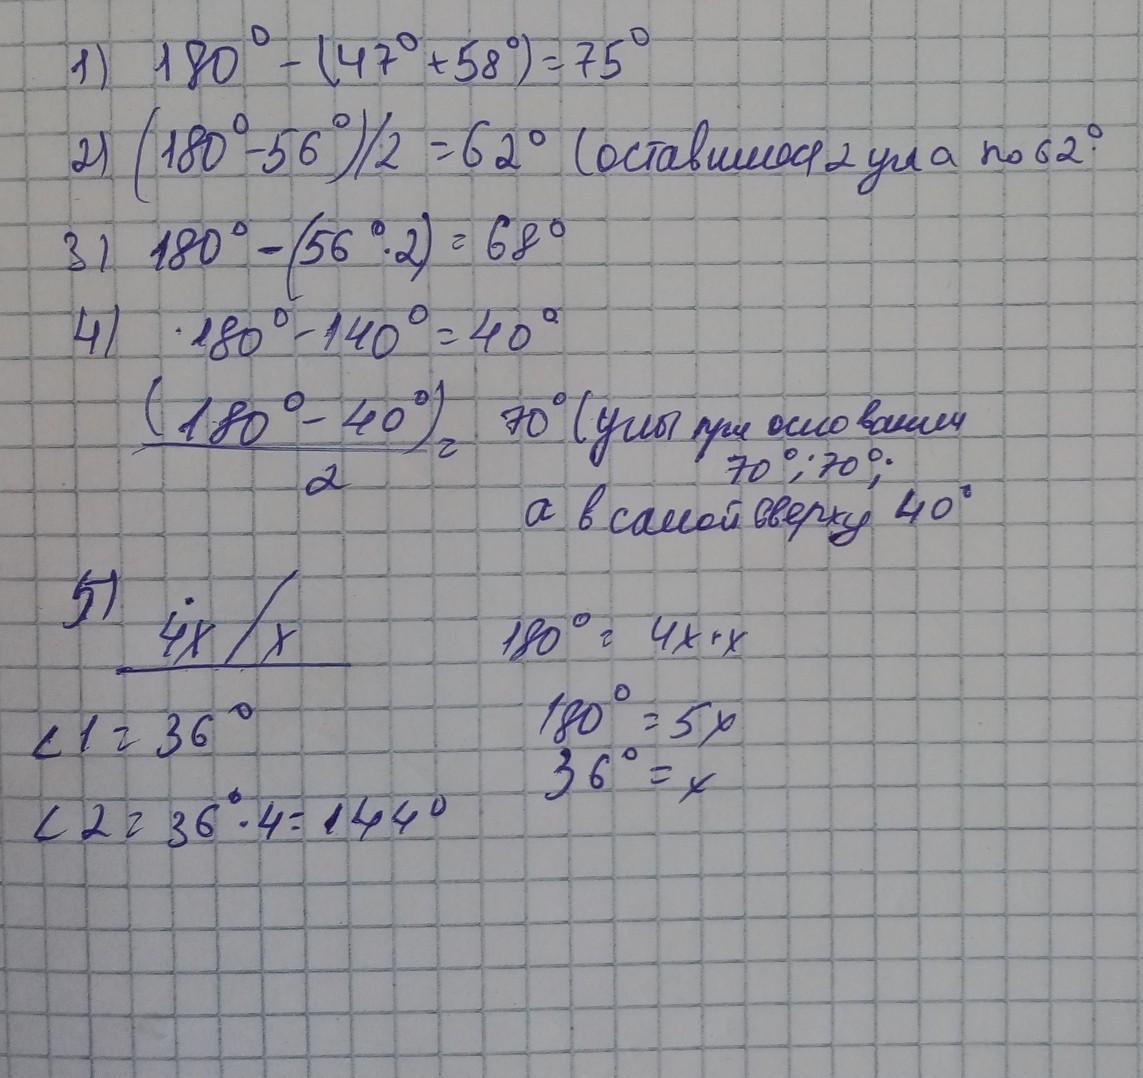 1) 180° - (47° + 58°) = 75°
2) (180° - 56°)/2 = 62° (оставшиеся 2 угла по 62°
3) 180° - (56° · 2) = 68°
4) 180° - 140° = 40°
(180° - 40°) / 2 = 70° (углы при основании
70°; 70°;
а в самой сверху 40°
5) 4x / x
180° = 4x + x
180° = 5x
36° = x
∠1 = 36°
∠2 = 36° · 4 = 144°